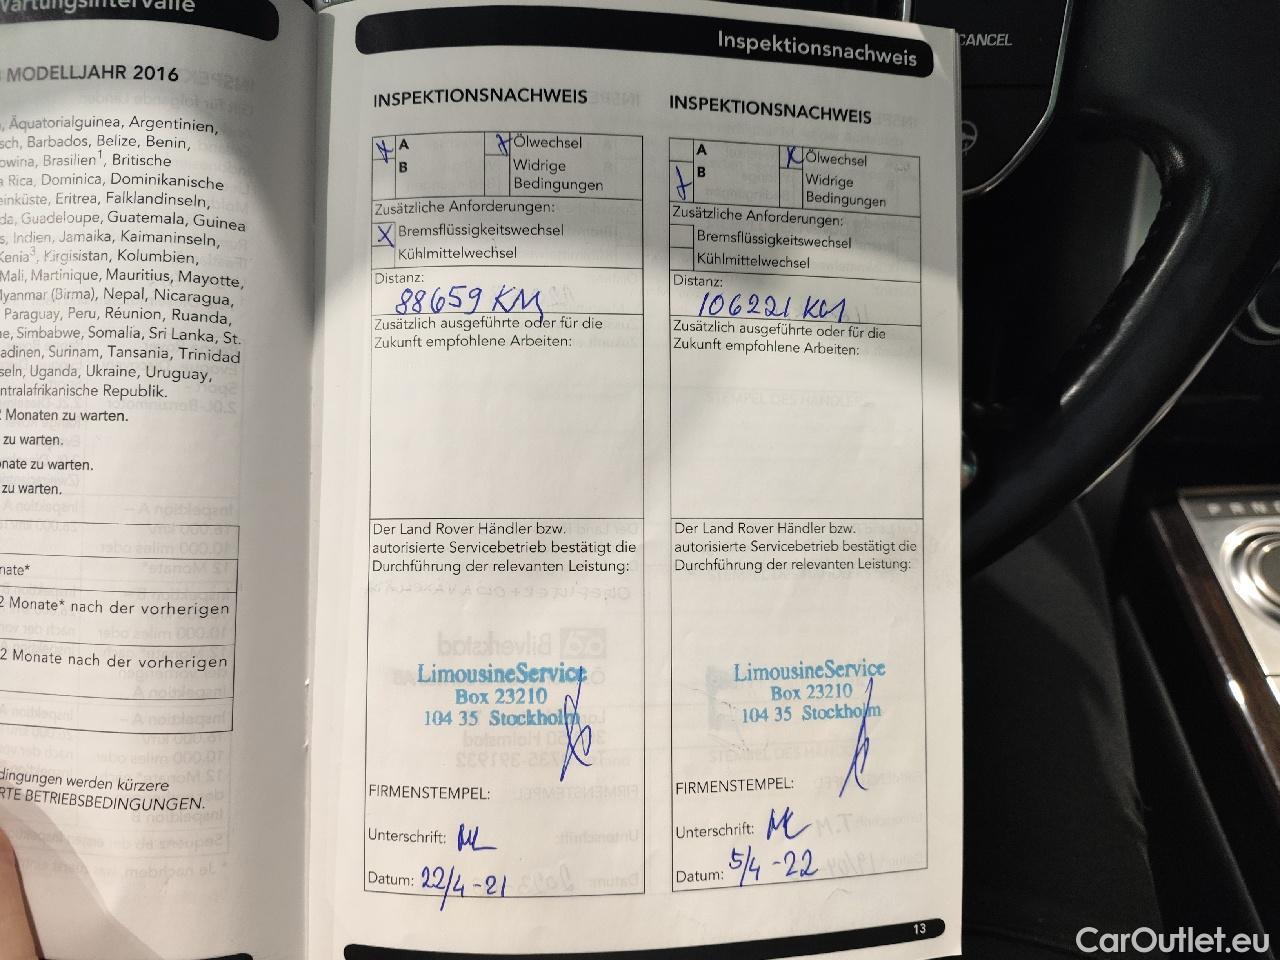 Wartungsintervalle
MODELLJAHR 2016
Äquatorialguinea, Argentinien,
Barbados, Belize, Benin,
Brasilien¹, Britische
Rica, Dominica, Dominikanische
Eritrea, Falklandinseln,
Guadeloupe, Guatemala, Guinea
Indien, Jamaika, Kaimaninseln,
Kenia³, Kirgisistan, Kolumbien,
Mali, Martinique, Mauritius, Mayotte,
Myanmar (Birma), Nepal, Nicaragua,
Paraguay, Peru, Réunion, Ruanda,
Simbabwe, Somalia, Sri Lanka, St.
Surinam, Tansania, Trinidad
Uganda, Ukraine, Uruguay,
Republik.
Monaten zu warten.
zu warten.
zu warten.
zu warten.
2 Monate* nach der vorherigen
2 Monate nach der vorherigen
werden kürzere
BETRIEBSBEDINGUNGEN.
Inspektionsnachweis
INSPEKTIONSNACHWEIS
A
Ölwechsel
B
Widrige
Bedingungen
Zusätzliche Anforderungen:
X Bremsflüssigkeitswechsel
Kühlmittelwechsel
Distanz:
88659 KM
Zusätzlich ausgeführte oder für die
Zukunft empfohlene Arbeiten:
Der Land Rover Händler bzw.
autorisierte Servicebetrieb bestätigt die
Durchführung der relevanten Leistung:
LimousineService
Box 23210
104 35 Stockholm
FIRMENSTEMPEL:
Unterschrift:
Datum: 22/4-21
INSPEKTIONSNACHWEIS
A
X Ölwechsel
B
Widrige
Bedingungen
Zusätzliche Anforderungen:
Bremsflüssigkeitswechsel
Kühlmittelwechsel
Distanz:
106221 KM
Zusätzlich ausgeführte oder für die
Zukunft empfohlene Arbeiten:
Der Land Rover Händler bzw.
autorisierte Servicebetrieb bestätigt die
Durchführung der relevanten Leistung:
LimousineService
Box 23210
104 35 Stockholm
FIRMENSTEMPEL:
Unterschrift:
Datum: 5/4-22
13
CANCEL
P R N
CarOutlet.eu